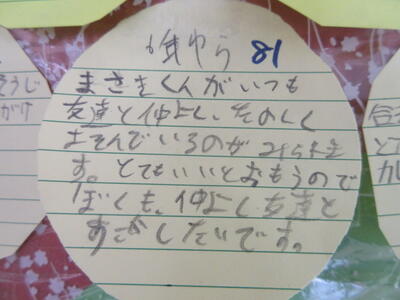 81
まさきくんがいつも
友達と仲よし、たのしく
あそんでいるのがみられま
す。とてもいいとおもうので
ぼくも、仲よし友達と
すごしたいです。
そうじ
がけ